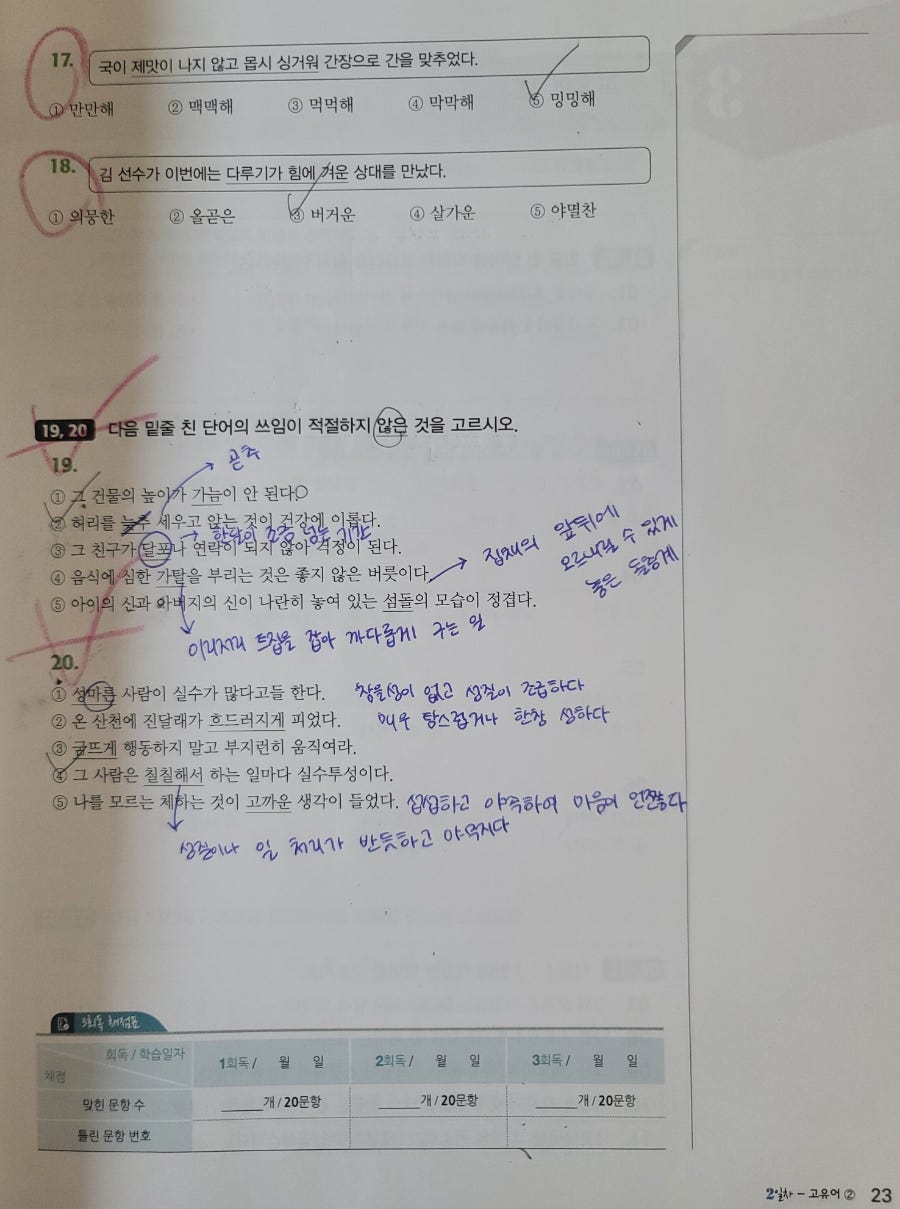 17. 국이 제맛이 나지 않고 몹시 싱거워 간장으로 간을 맞추었다.
① 만만해 ② 맥맥해 ③ 먹먹해 ④ 막막해 ⑤ 밍밍해
18. 김 선수가 이번에는 다루기가 힘에 겨운 상대를 만났다.
① 의뭉한 ② 올곧은 ③ 버거운 ④ 살가운 ⑤ 야멸찬
19, 20 다음 밑줄 친 단어의 쓰임이 적절하지 않은 것을 고르시오.
19.
곧추
① 그 건물의 높이가 가늠이 안 된다.
② 허리를 늦추 세우고 앉는 것이 건강에 이롭다.
한달이 조금 넘는 기간
③ 그 친구가 달포나 연락이 되지 않아 걱정이 된다.
④ 음식에 심한 가탈을 부리는 것은 좋지 않은 버릇이다.
집채의 앞뒤에
오르내릴 수 있게
놓은 돌층계
⑤ 아이의 신과 아버지의 신이 나란히 놓여 있는 섬돌의 모습이 정겹다.
이리저리 트집을 잡아 까다롭게 구는 일
20.
① 성마른 사람이 실수가 많다고들 한다. 참을성이 없고 성질이 조급하다
② 온 산천에 진달래가 흐드러지게 피었다. 매우 탐스럽거나 한창 성하다
③ 굼뜨게 행동하지 말고 부지런히 움직여라.
④ 그 사람은 칠칠해서 하는 일마다 실수투성이다.
⑤ 나를 모르는 체하는 것이 고까운 생각이 들었다. 섭섭하고 야속하여 마음이 언짢다
성질이나 일 처리가 반듯하고 야무지다
3회독 채점표
회독 / 학습일자 1회독 / 월 일 2회독 / 월 일 3회독 / 월 일
채점
맞힌 문항 수 ____개 / 20문항 ____개 / 20문항 ____개 / 20문항
틀린 문항 번호
2일차 – 고유어 ② 23